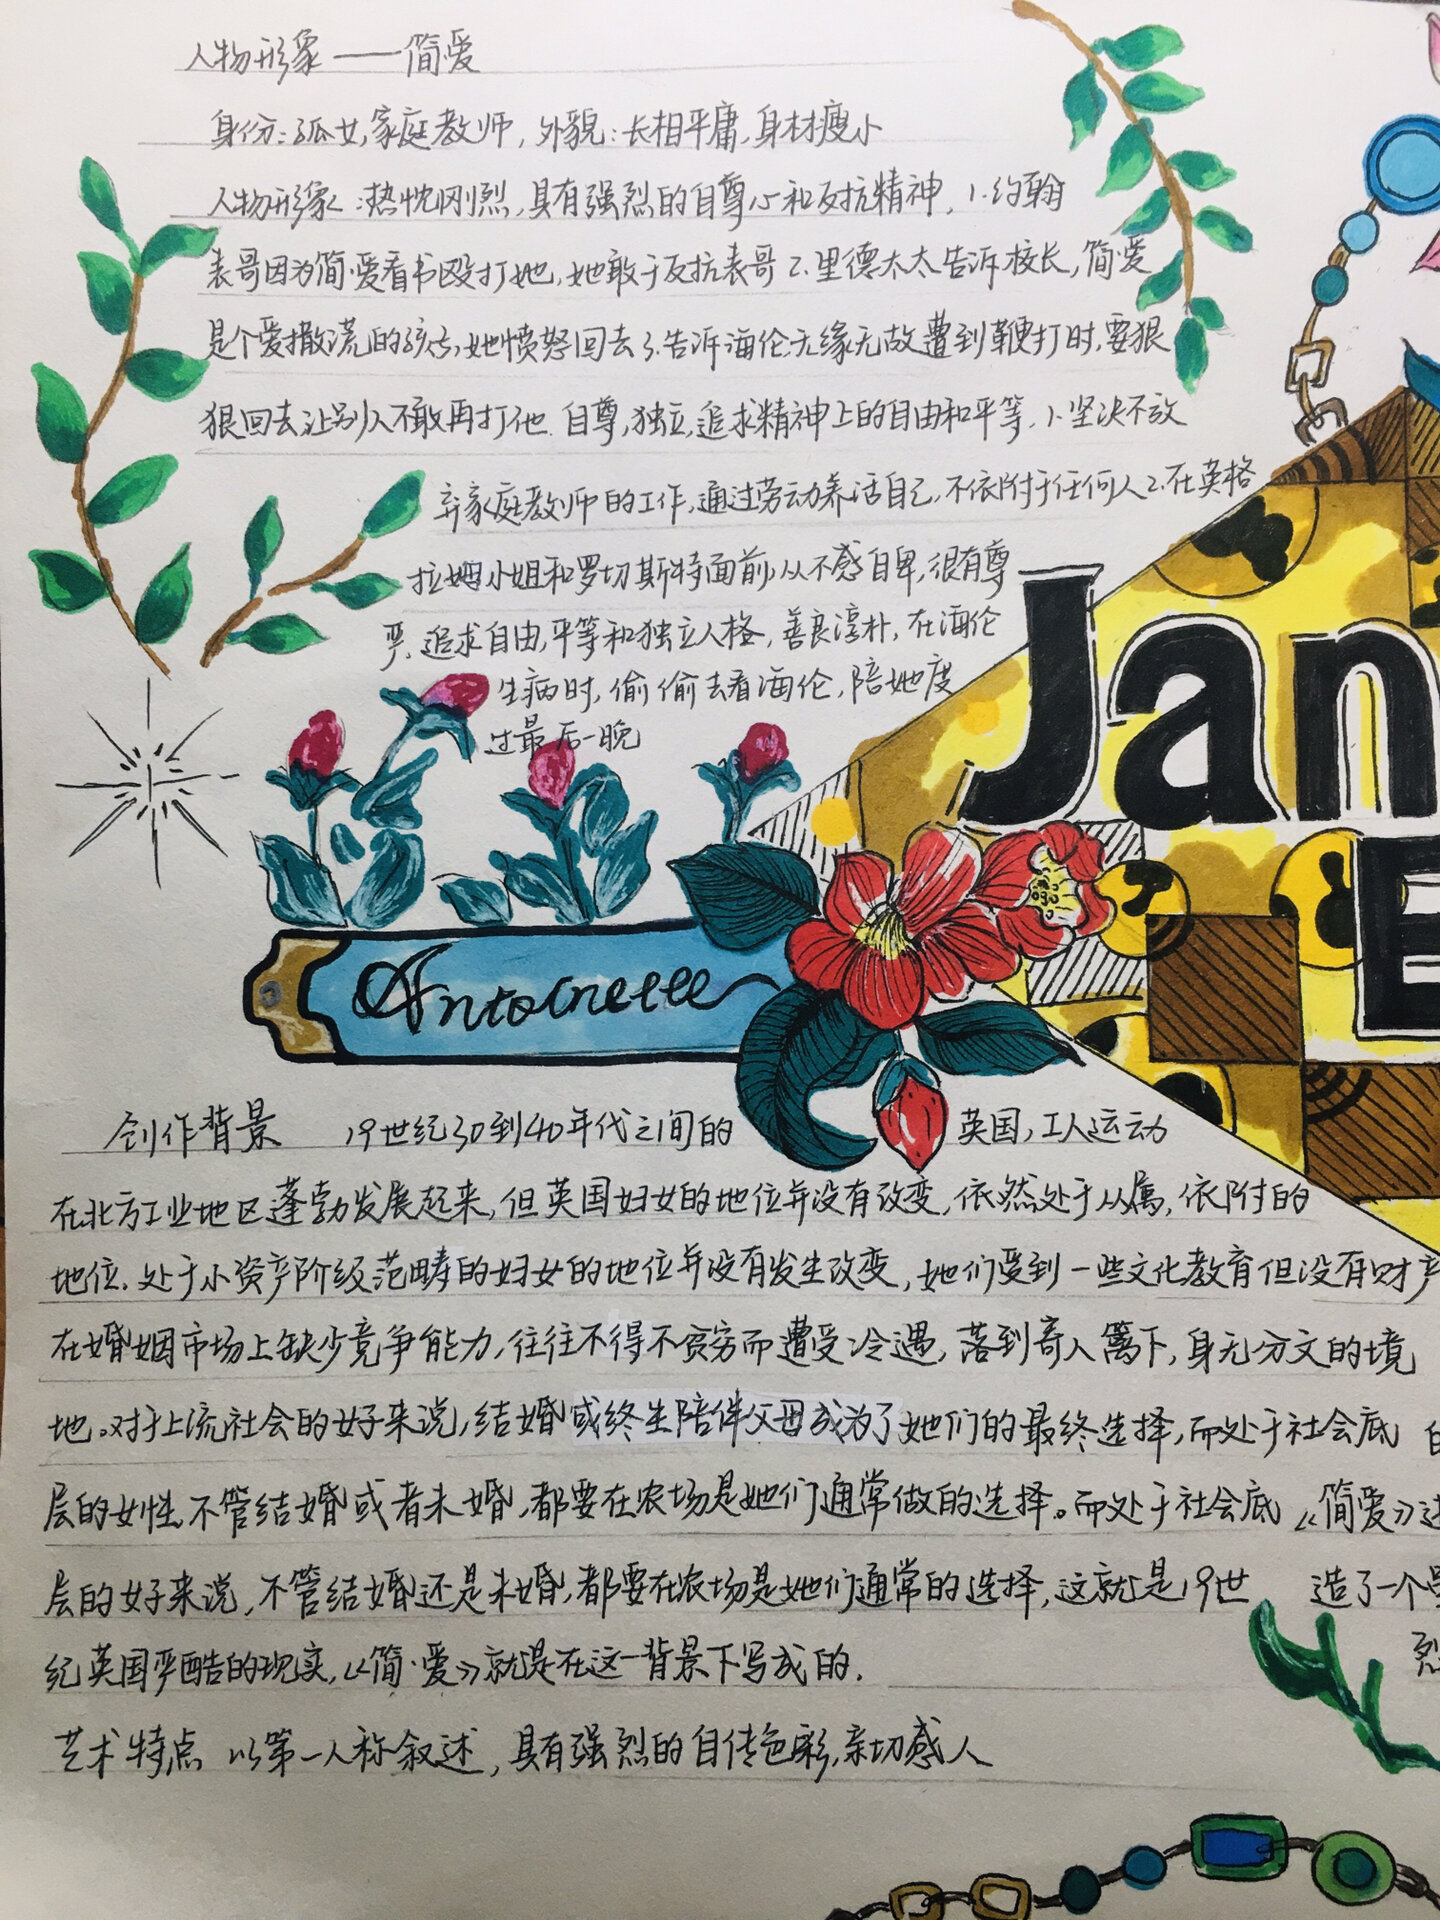 人物形象——简爱
身份:孤女,家庭教师,外貌:长相平庸,身材瘦小
人物形象:热忱刚烈,具有强烈的自尊心和反抗精神,1.约翰
表哥因为简·爱看书殴打她,她敢于反抗表哥2.里德太太告诉校长,简爱
是个爱撒谎的孩子,她愤怒回去3.告诉海伦无缘无故遭到鞭打时,要狠
狠回去让别人不敢再打他.自尊,独立,追求精神上的自由和平等.1.坚决不放
弃家庭教师的工作,通过劳动养活自己,不依附于任何人2.在英格
拉姆小姐和罗切斯特面前从不感自卑,很有尊
严.追求自由,平等和独立人格,善良淳朴,在海伦
生病时,偷偷去看海伦,陪她度
过最后一晚
Jan
E
Antoinette
创作背景 19世纪30到40年代之间的英国,工人运动
在北方工业地区蓬勃发展起来,但英国妇女的地位并没有改变,依然处于从属,依附的
地位.处于小资产阶级范畴的妇女的地位并没有发生改变,她们受到一些文化教育但没有财产
在婚姻市场上缺少竞争能力,往往不得不贫穷而遭受冷遇,落到寄人篱下,身无分文的境
地。对于上流社会的女子来说,结婚或终生陪伴父母成为了她们的最终选择,而处于社会底
层的女性,不管结婚或者未婚,都要在农场是她们通常做的选择。而处于社会底
层的女子来说,不管结婚还是未婚,都要在农场是她们通常的选择,这就是19世
纪英国严酷的现实,《简·爱》就是在这一背景下写成的.
艺术特点 以第一人称叙述,具有强烈的自传色彩,亲切感人
的
《简爱》
造了一个
烈